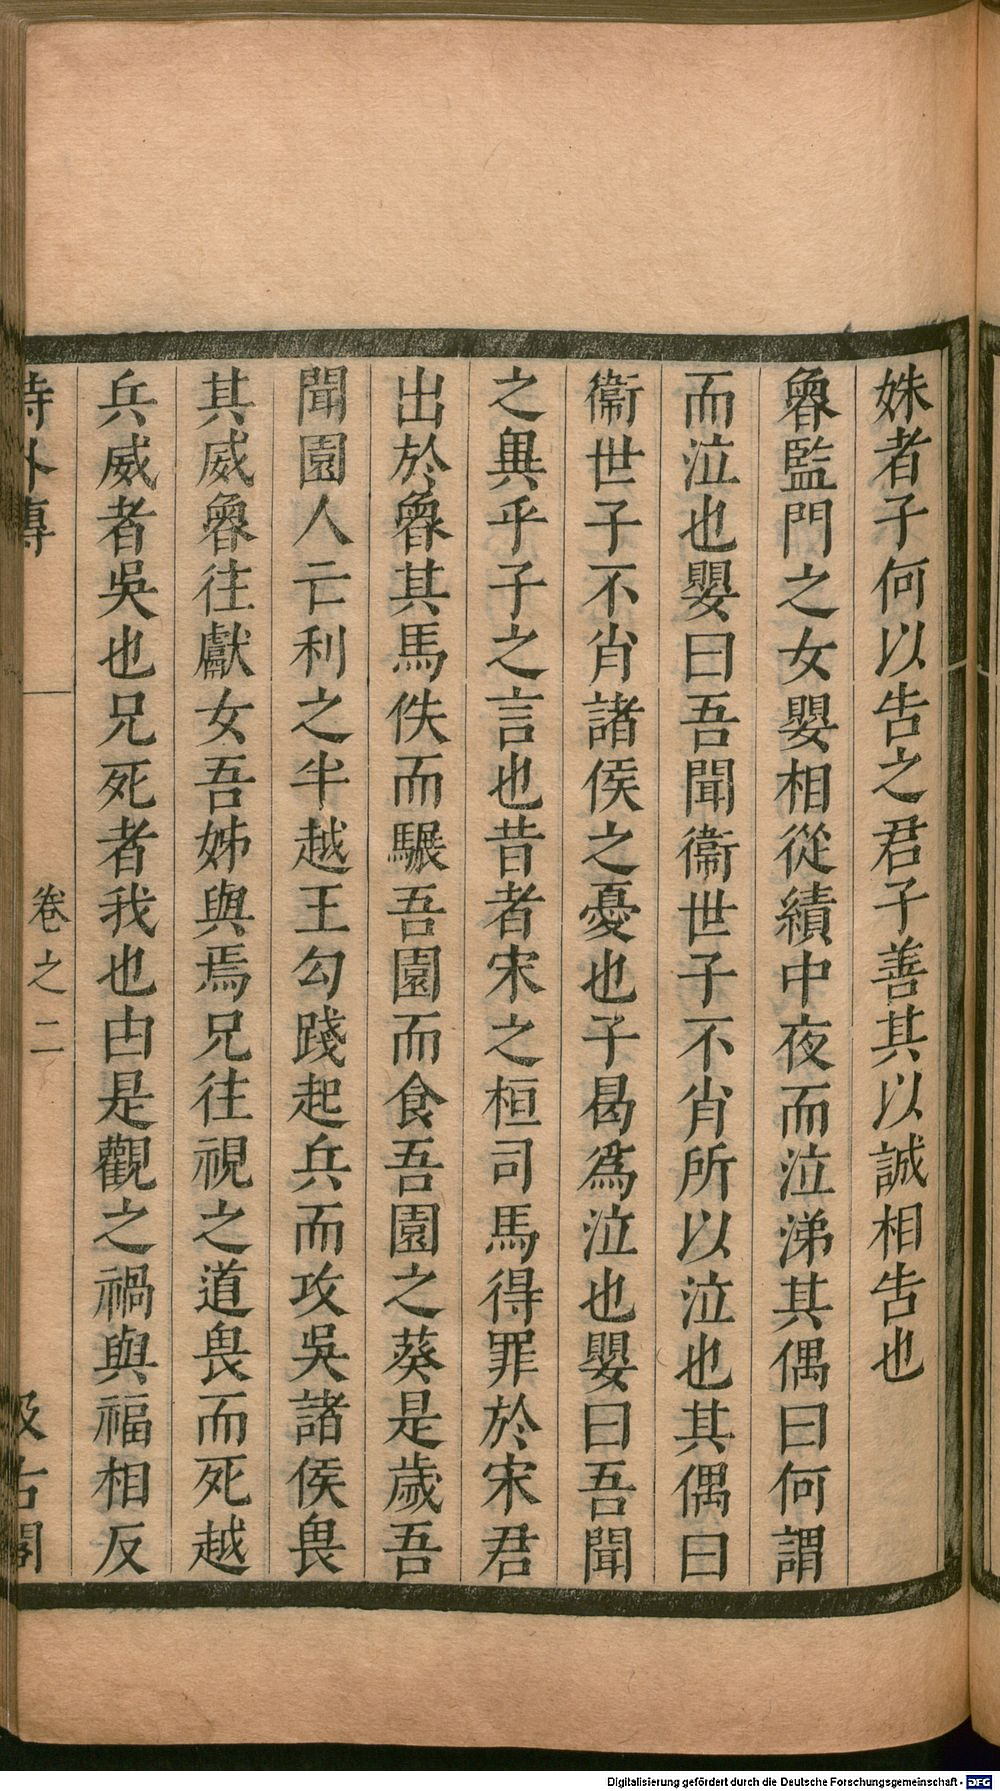 姝者子何以告之君子善其以誠相告也
魯監門之女嬰相從績中夜而泣涕其偶曰何謂
而泣也嬰曰吾聞衞世子不肖所以泣也其偶曰
衞世子不肖諸侯之憂也子曷爲泣也嬰曰吾聞
之異乎子之言也昔者宋之桓司馬得罪於宋君
出於魯其馬佚而驏吾園而食吾園之葵是歲吾
聞園人亡利之半越王勾踐起兵而攻吳諸侯畏
其威魯往獻女吾姊與焉兄往視之道畏而死越
兵威者吳也兄死者我也由是觀之禍與福相反
詩外傳
卷之二
汲古閣
Digitalisierung gefördert durch die Deutsche Forschungsgemeinschaft - DFG